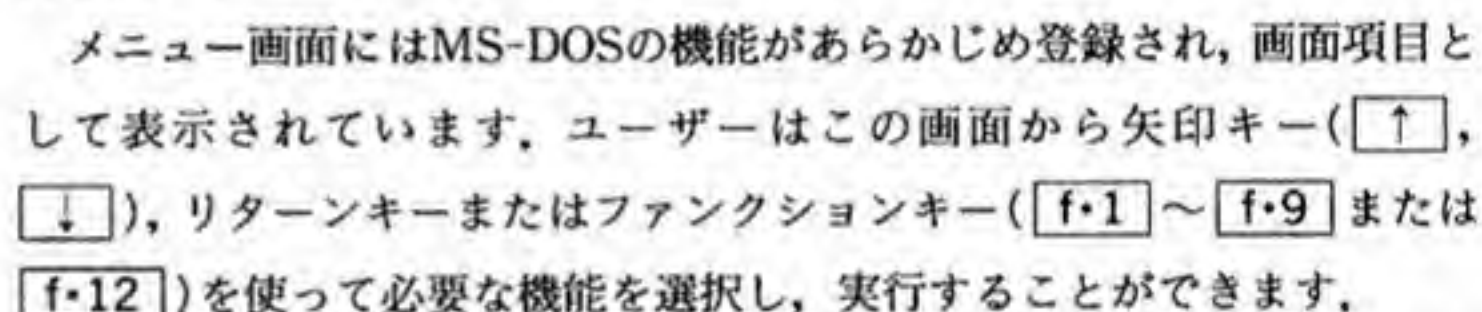 メニュー画面にはMS-DOSの機能があらかじめ登録され，画面項目と
して表示されています．ユーザーはこの画面から矢印キー(↑，
↓)，リターンキーまたはファンクションキー(f・1～f・9または
f・12)を使って必要な機能を選択し，実行することができます．